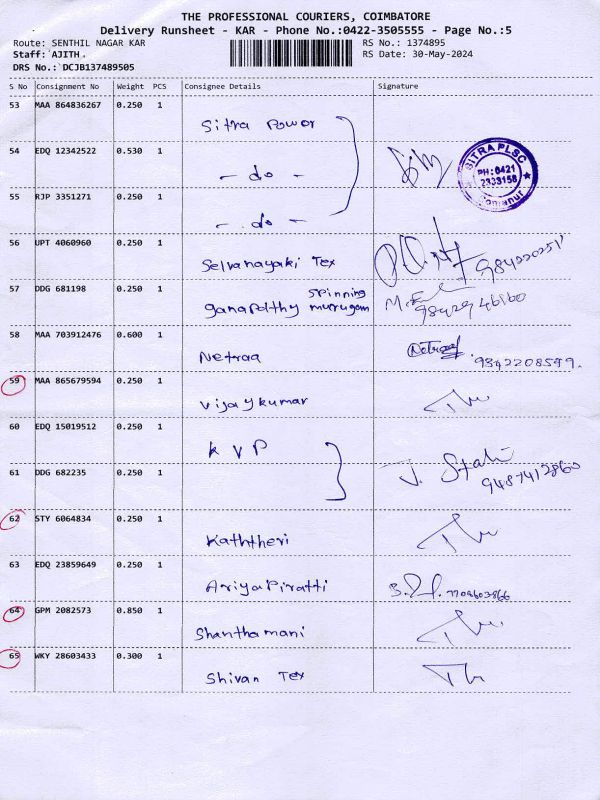 THE PROFESSIONAL COURIERS, COIMBATORE
Delivery Runsheet - KAR - Phone No.:0422-3505555 - Page No.:5
Route: SENTHIL NAGAR KAR RS No.: 1374895
Staff: AJITH. RS Date: 30-May-2024
DRS No.: DCJB137489505
S No Consignment No Weight PCS Consignee Details Signature
53 MAA 864836267 0.250 1 Sitra Power
54 EDQ 12342522 0.530 1 - do -
SITRA PLSC
PH: 0421
2333158
55 RJP 3351271 0.250 1 - do -
56 UPT 4060960 0.250 1 Selvanayaki Tex
57 DDG 681198 0.250 1 Ganapathy murugam spinning
58 MAA 703912476 0.600 1 Netraa Netraa
59 MAA 865679594 0.250 1 Vijaykumar
60 EDQ 15019512 0.250 1 K V P
61 DDG 682235 0.250 1 9487412860
62 STY 6064834 0.250 1 Kaththeri
63 EDQ 23859649 0.250 1 Ariyapiratti
64 GPM 2082573 0.850 1 Shanthamani
65 WKY 28603433 0.300 1 Shivan Tex